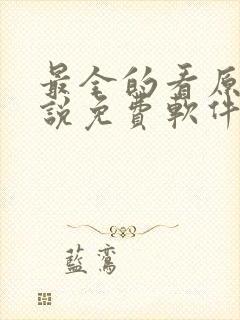 最全的看原
說免費軟件
藍鸞